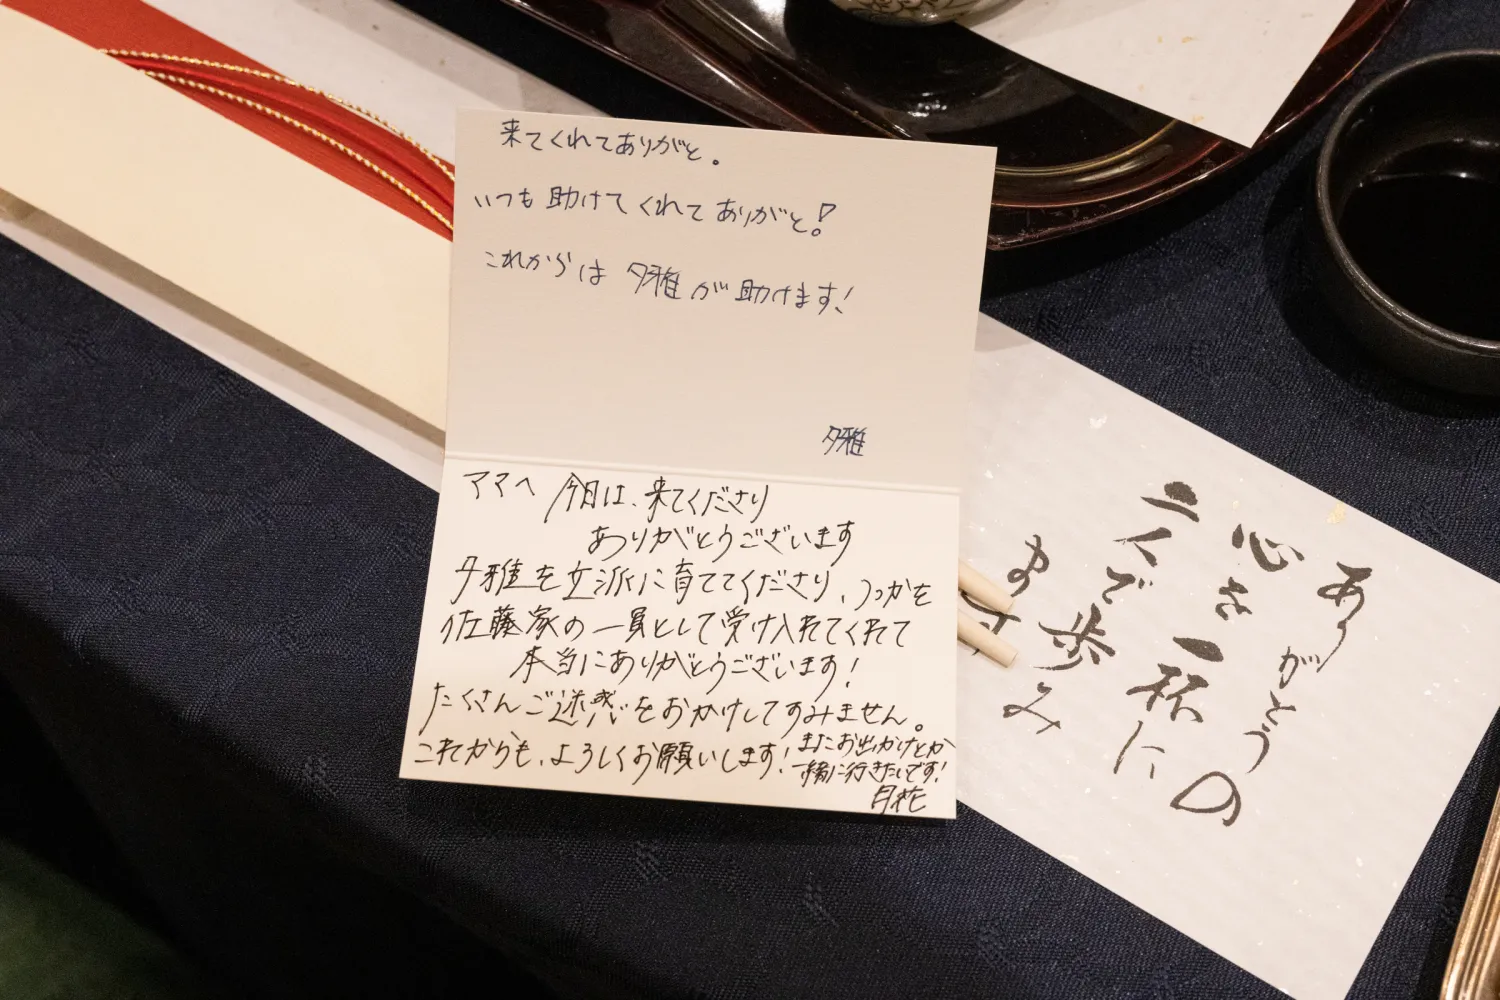 来てくれてありがと。
いつも助けてくれてありがと!
これからは夕雅が助けます!
夕雅
ママへ 今日は、来てくださり
ありがとうございます
夕雅を立派に育ててくださり、つかを
佐藤家の一員として受け入れてくれて
本当にありがとうございます!
たくさんご迷惑をおかけしてすみません。
これからも、よろしくお願いします!
またお出かけとか
一緒に行きたいです!
月花
ありがとうの
心を一杯に
二人で歩み
ます